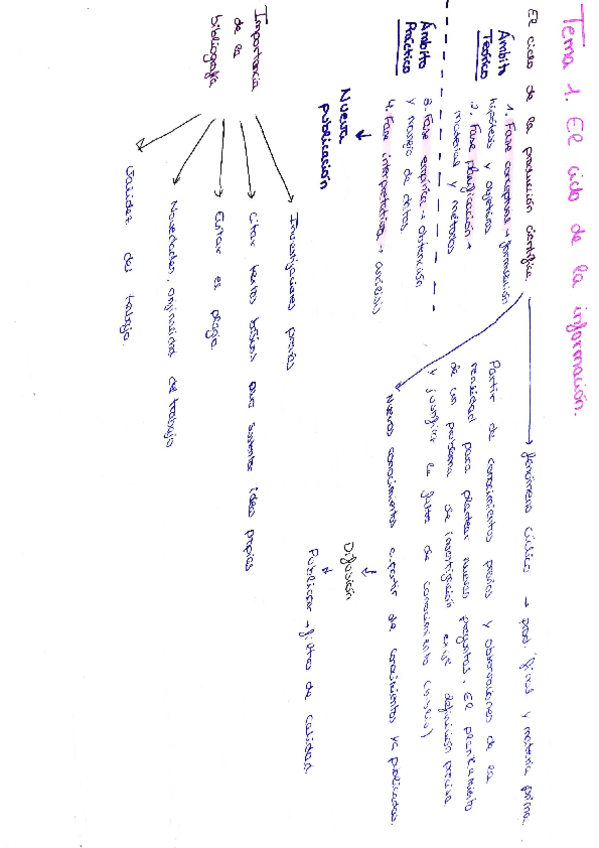 Tema 1. El ciclo de la información.
El ciclo de la producción científica.
fenómeno cíclico → prod. final y materia prima.
Partir de conocimientos previos y observaciones de la
realidad para plantear nuevas preguntas. El planteamiento
de un problema de investigación definición precisa
y justificar la falta de conocimiento
Nuevos conocimientos a partir de conocimientos ya publicados.
Difusión
Publicar → filtro de calidad.
Ámbito
Teórico
1. Fase conceptual → formulación
hipótesis y objetivos
2. Fase planificación →
material y métodos
Ámbito
Práctico
3. Fase empírica → obtención
y manejo de datos
4. Fase interpretativa → análisis
Nueva
publicación
Importancia
de la
bibliografía
Investigaciones previas
Citar textos básicos para sustentar ideas propias
Evitar el plagio.
Novedades, originalidad de trabajo
Validez del trabajo.